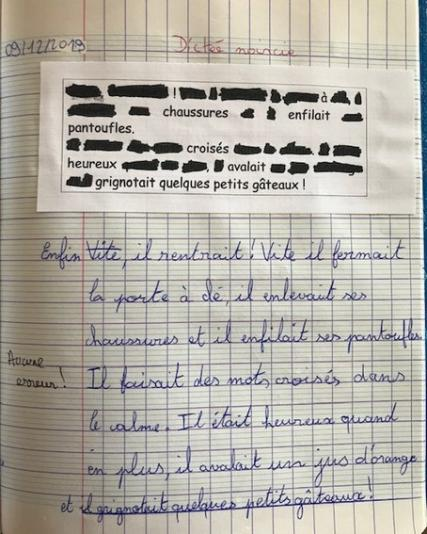 09/12/2019
Dictée noircie
! à
chaussures enfilait
pantoufles.
croisés
heureux , avalait
grignotait quelques petits gâteaux !
Enfin Vite, il rentrait ! Vite il fermait
la porte à clé, il enlevait ses
chaussures et il enfilait ses pantoufles
Aucune
erreur !
Il faisait des mots croisés dans
le calme. Il était heureux quand
en plus, il avalait un jus d'orange
et il grignotait quelques petits gâteaux !